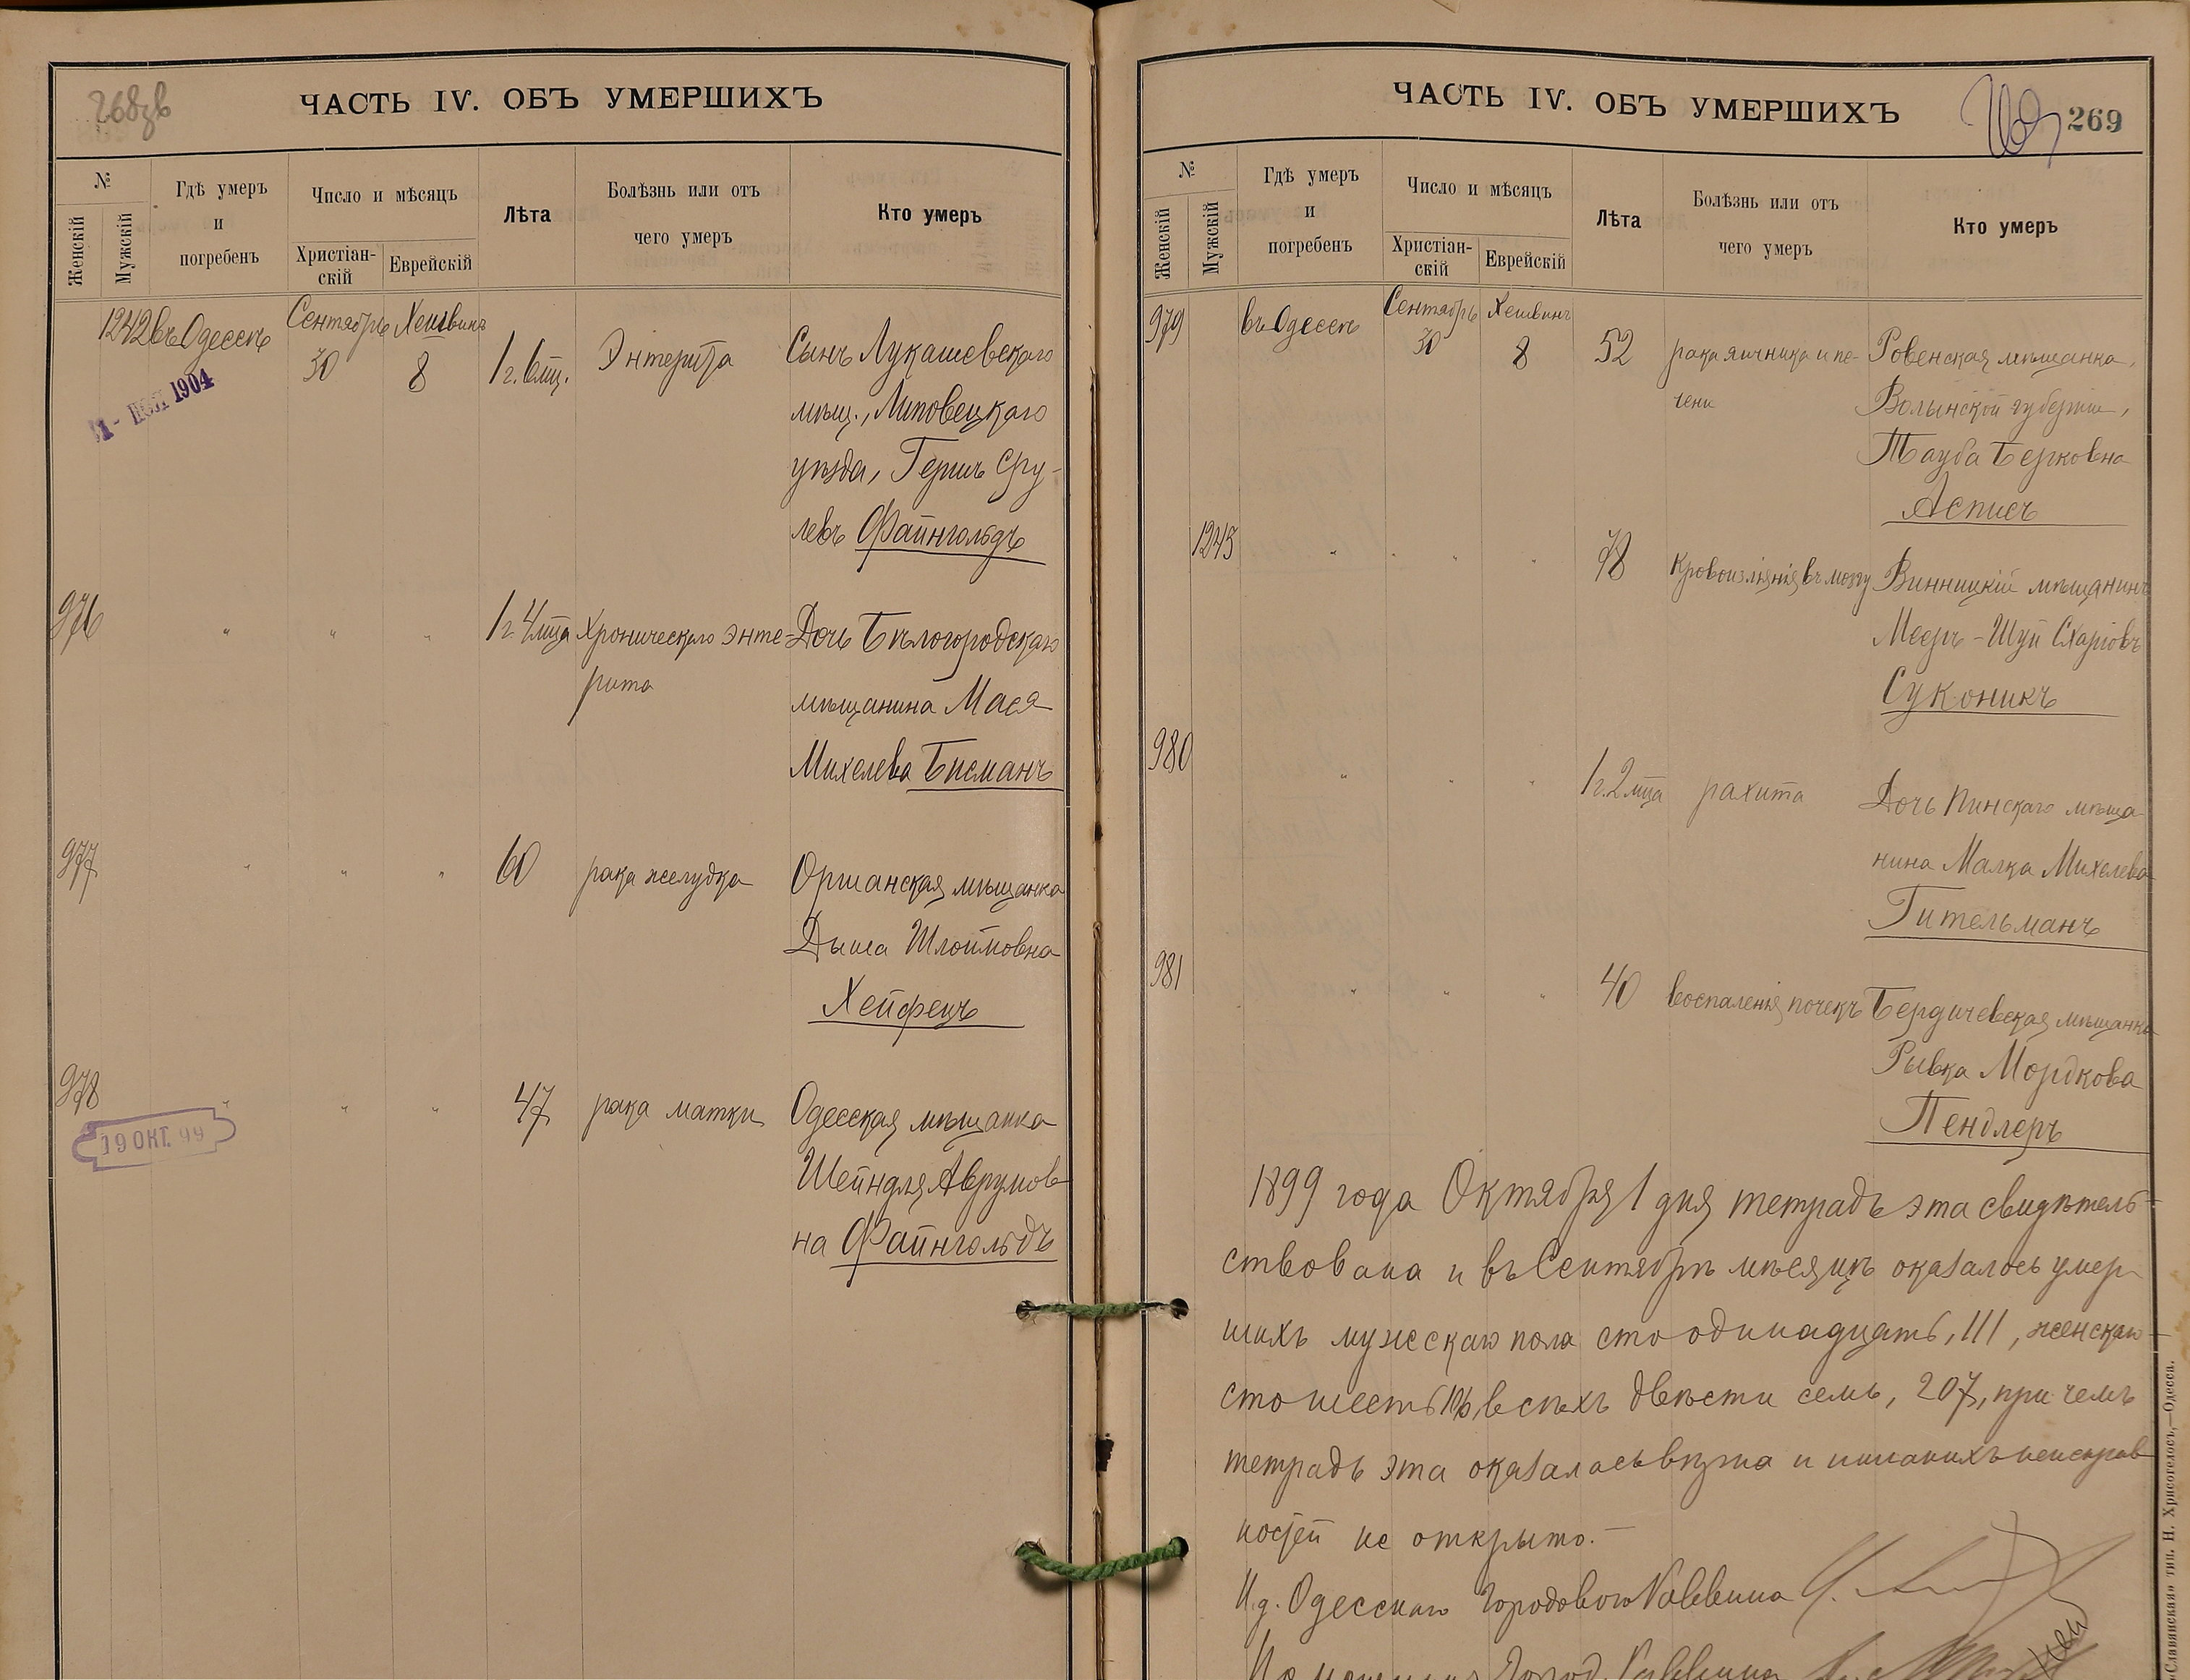 268зв
ЧАСТЬ IV. ОБЪ УМЕРШИХЪ
№
Женскій
Мужскій
Гдѣ умеръ
и
погребенъ
Число и мѣсяцъ
Христіан-
скій
Еврейскій
Лѣта
Болѣзнь или отъ
чего умеръ
Кто умеръ
1242 въ Одессѣ Сентябрь Хешвинъ
30 8 1 г. 6 мц. Энтерита Сынъ Лукашевскаго
мѣщ., Липовецкаго
уѣзда, Гершъ Сру-
левъ Файнгольдъ
1904
976 " " " 1 г. 4 мца Хроническаго энте- Дочь Бѣлогородскаго
рита
мѣщанина Мася
Михелева Бисманъ
977 " " " 60 рака желудка Оршанская мѣщанка
Дыша Шлоймовна
Хейфецъ
978 " " " 47 рака матки Одесская мѣщанка
Шейндля Аврумов
на Файнгольдъ
19 ОКТ. 99
ЧАСТЬ IV. ОБЪ УМЕРШИХЪ
269
№
Женскій
Мужскій
Гдѣ умеръ
и
погребенъ
Число и мѣсяцъ
Христіан-
скій
Еврейскій
Лѣта
Болѣзнь или отъ
чего умеръ
Кто умеръ
979 въ Одессѣ Сентябрь Хешвинъ
30 8 52 рака яичника и пе- Ровенская мѣщанка,
чени Волынской губерніи,
Тауба Берковна
Асписъ
1243 " " " " 78 Кровоизліянія въ мозгу Винницкій мѣщанинъ
Мееръ-Шуй Схаріовъ
Суконикъ
980 " " " 1 г. 2 мца рахита Дочь Пинскаго мѣща-
нина Малка Михелева
Гительманъ
981 " " " 40 воспаленія почекъ Бердичевская мѣщанка
Рывка Мордкова
Пендлеръ
1899 года Октября 1 дня тетрадь эта свидѣтель-
ствована и въ Сентябрѣ мѣсяцѣ оказалось умер
шихъ мужскаго пола сто одинадцать, 111, женскаго
сто шесть 106, всѣхъ двѣсти семь, 207, при чемъ
тетрадь эта оказалась вѣрна и никакихъ неисправ
ностей не открыто.—
И.д. Одесскаго Городового Раввина
Раввина
«Славянская» тип. Н. Хрисогелосъ,—Одесса.